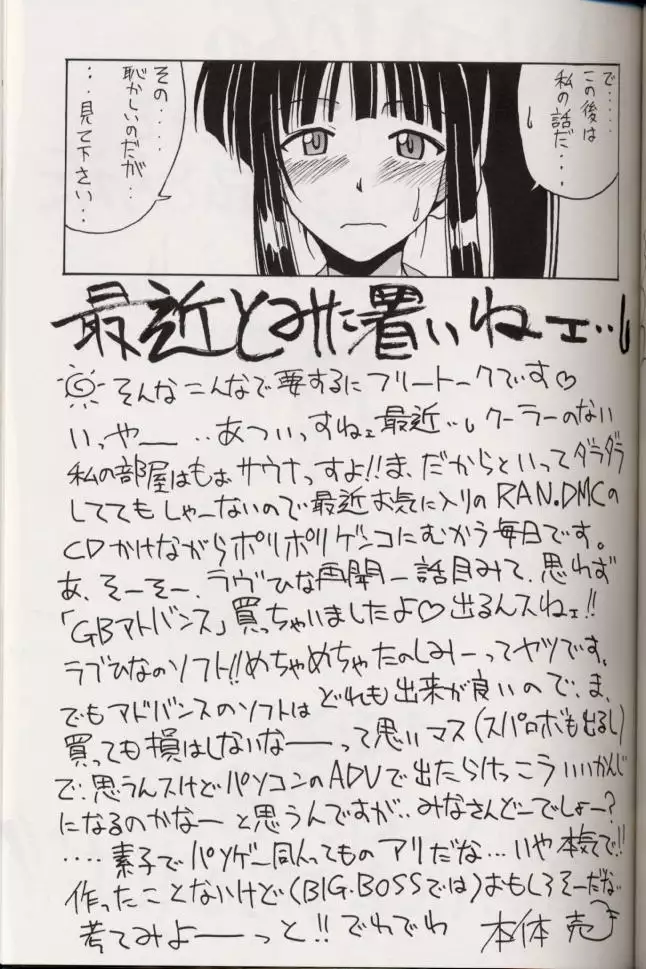 で‥‥
この後は
私の話だ・・・
その・・・・
恥かしいのだが
・・・見て下さい・・
最近とみた暑いねェ・・
そんなこんなで要するにフリートークです♡
いっやー ・・あついっすねェ最近・・クーラーのない
私の部屋はもぉサウナっすよ!!ま、だからといってダラダラ
しててもしゃーないので最近お気に入りのRAN.DMCの
CDかけながらポリポリゲンコにむかう毎日です。
あ、そーそー、ラヴひな再開一話目みて、思わず
「GBアドバンス」買っちゃいましたよ♡出るんスねェ!!
ラブひなのソフト!!めちゃめちゃたのしみーってヤツです。
でもアドバンスのソフトはどれも出来が良いので、ま、
買っても損はしないなーって思いマス(スパロボも出るし)
で、思うんスけどパソコンのADVで出たらけっこういいかんじ
になるのかなーと思うんですが・・みなさんどーでしょー?
‥‥素子でパソゲー同人ってものアリだな…いや本気で!!
作ったことないけど(BIG.BOSSでは)おもしろそーだな
考てみよーっと!!でわでわ 本体 売